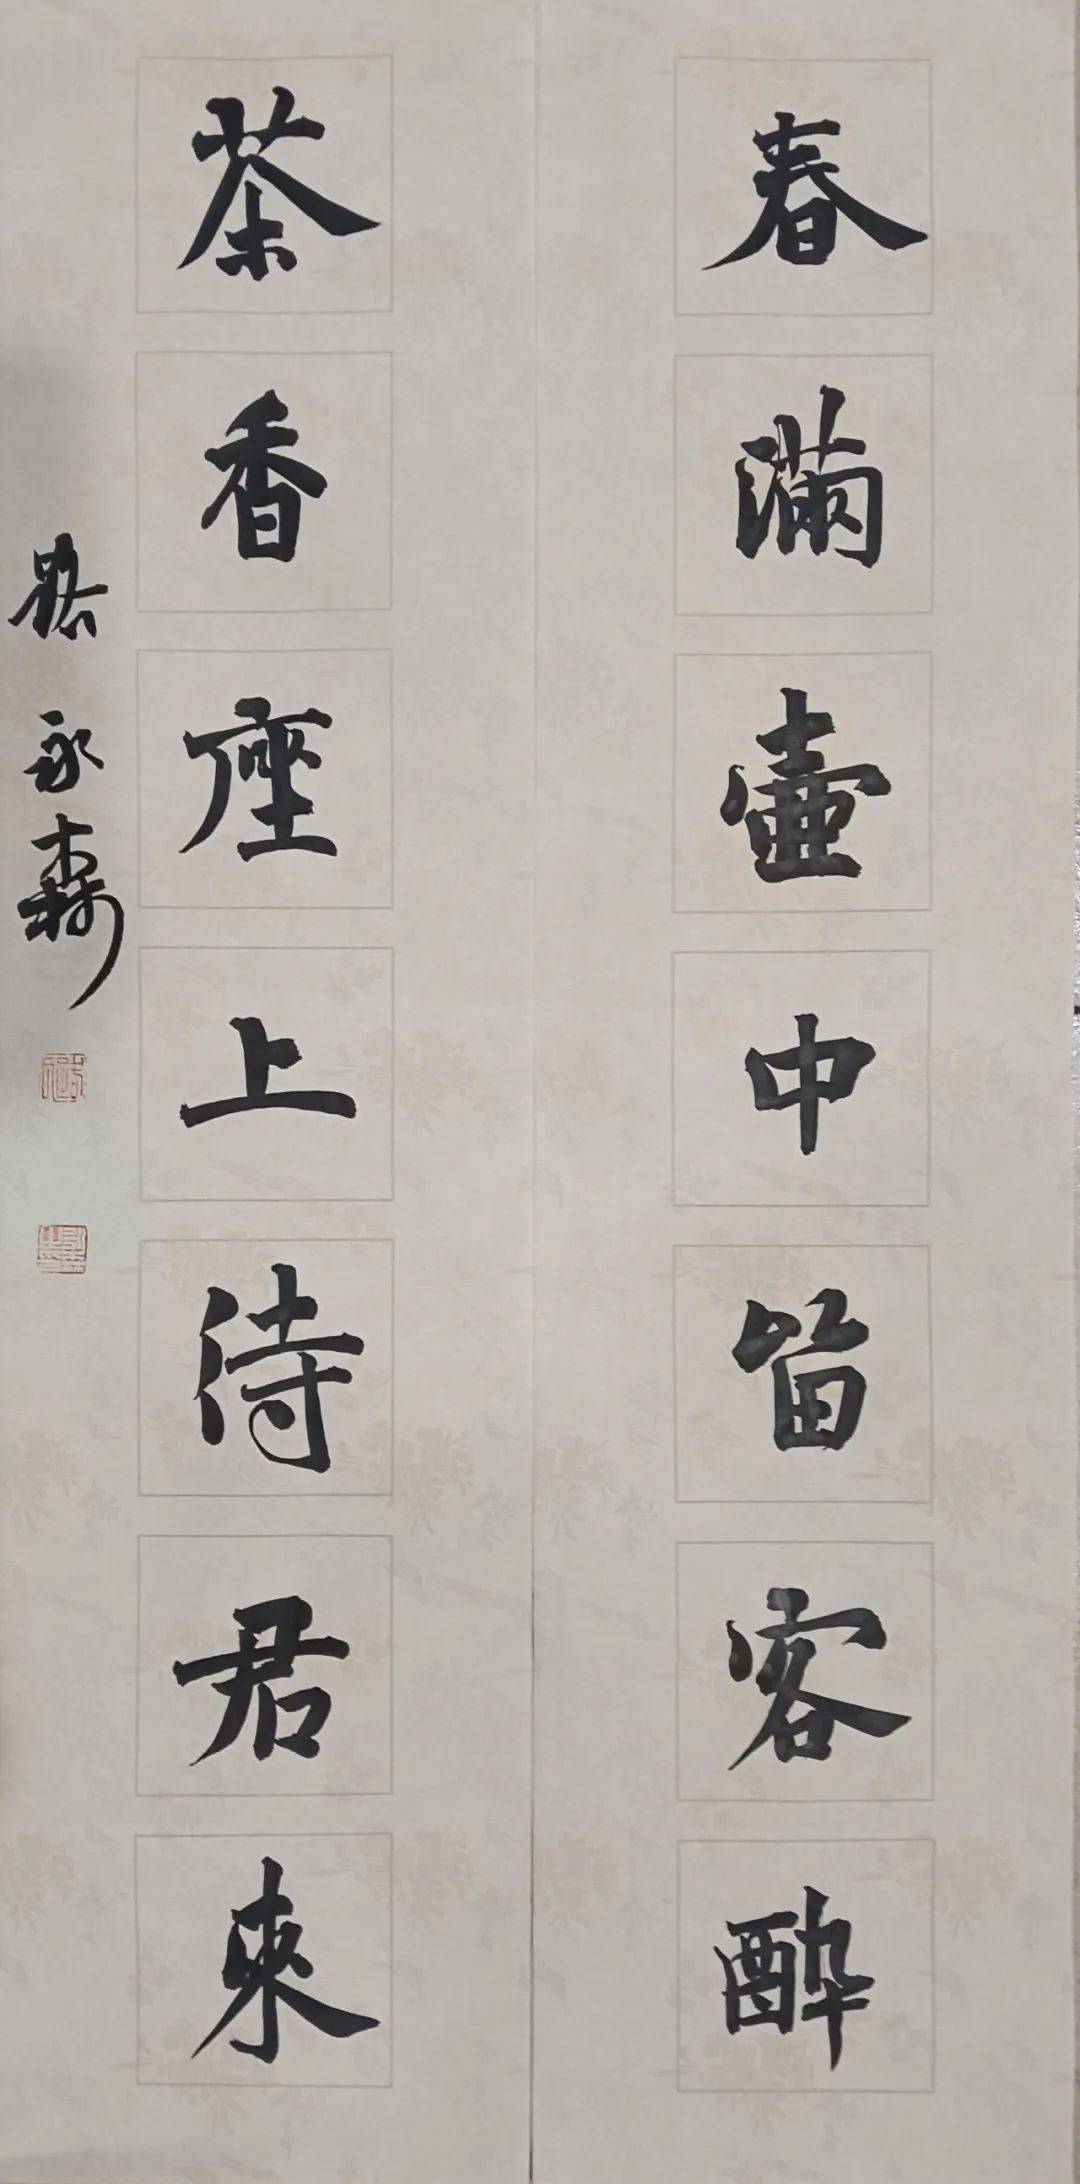 春滿壺中留客醉
茶香座上待君來
路永森